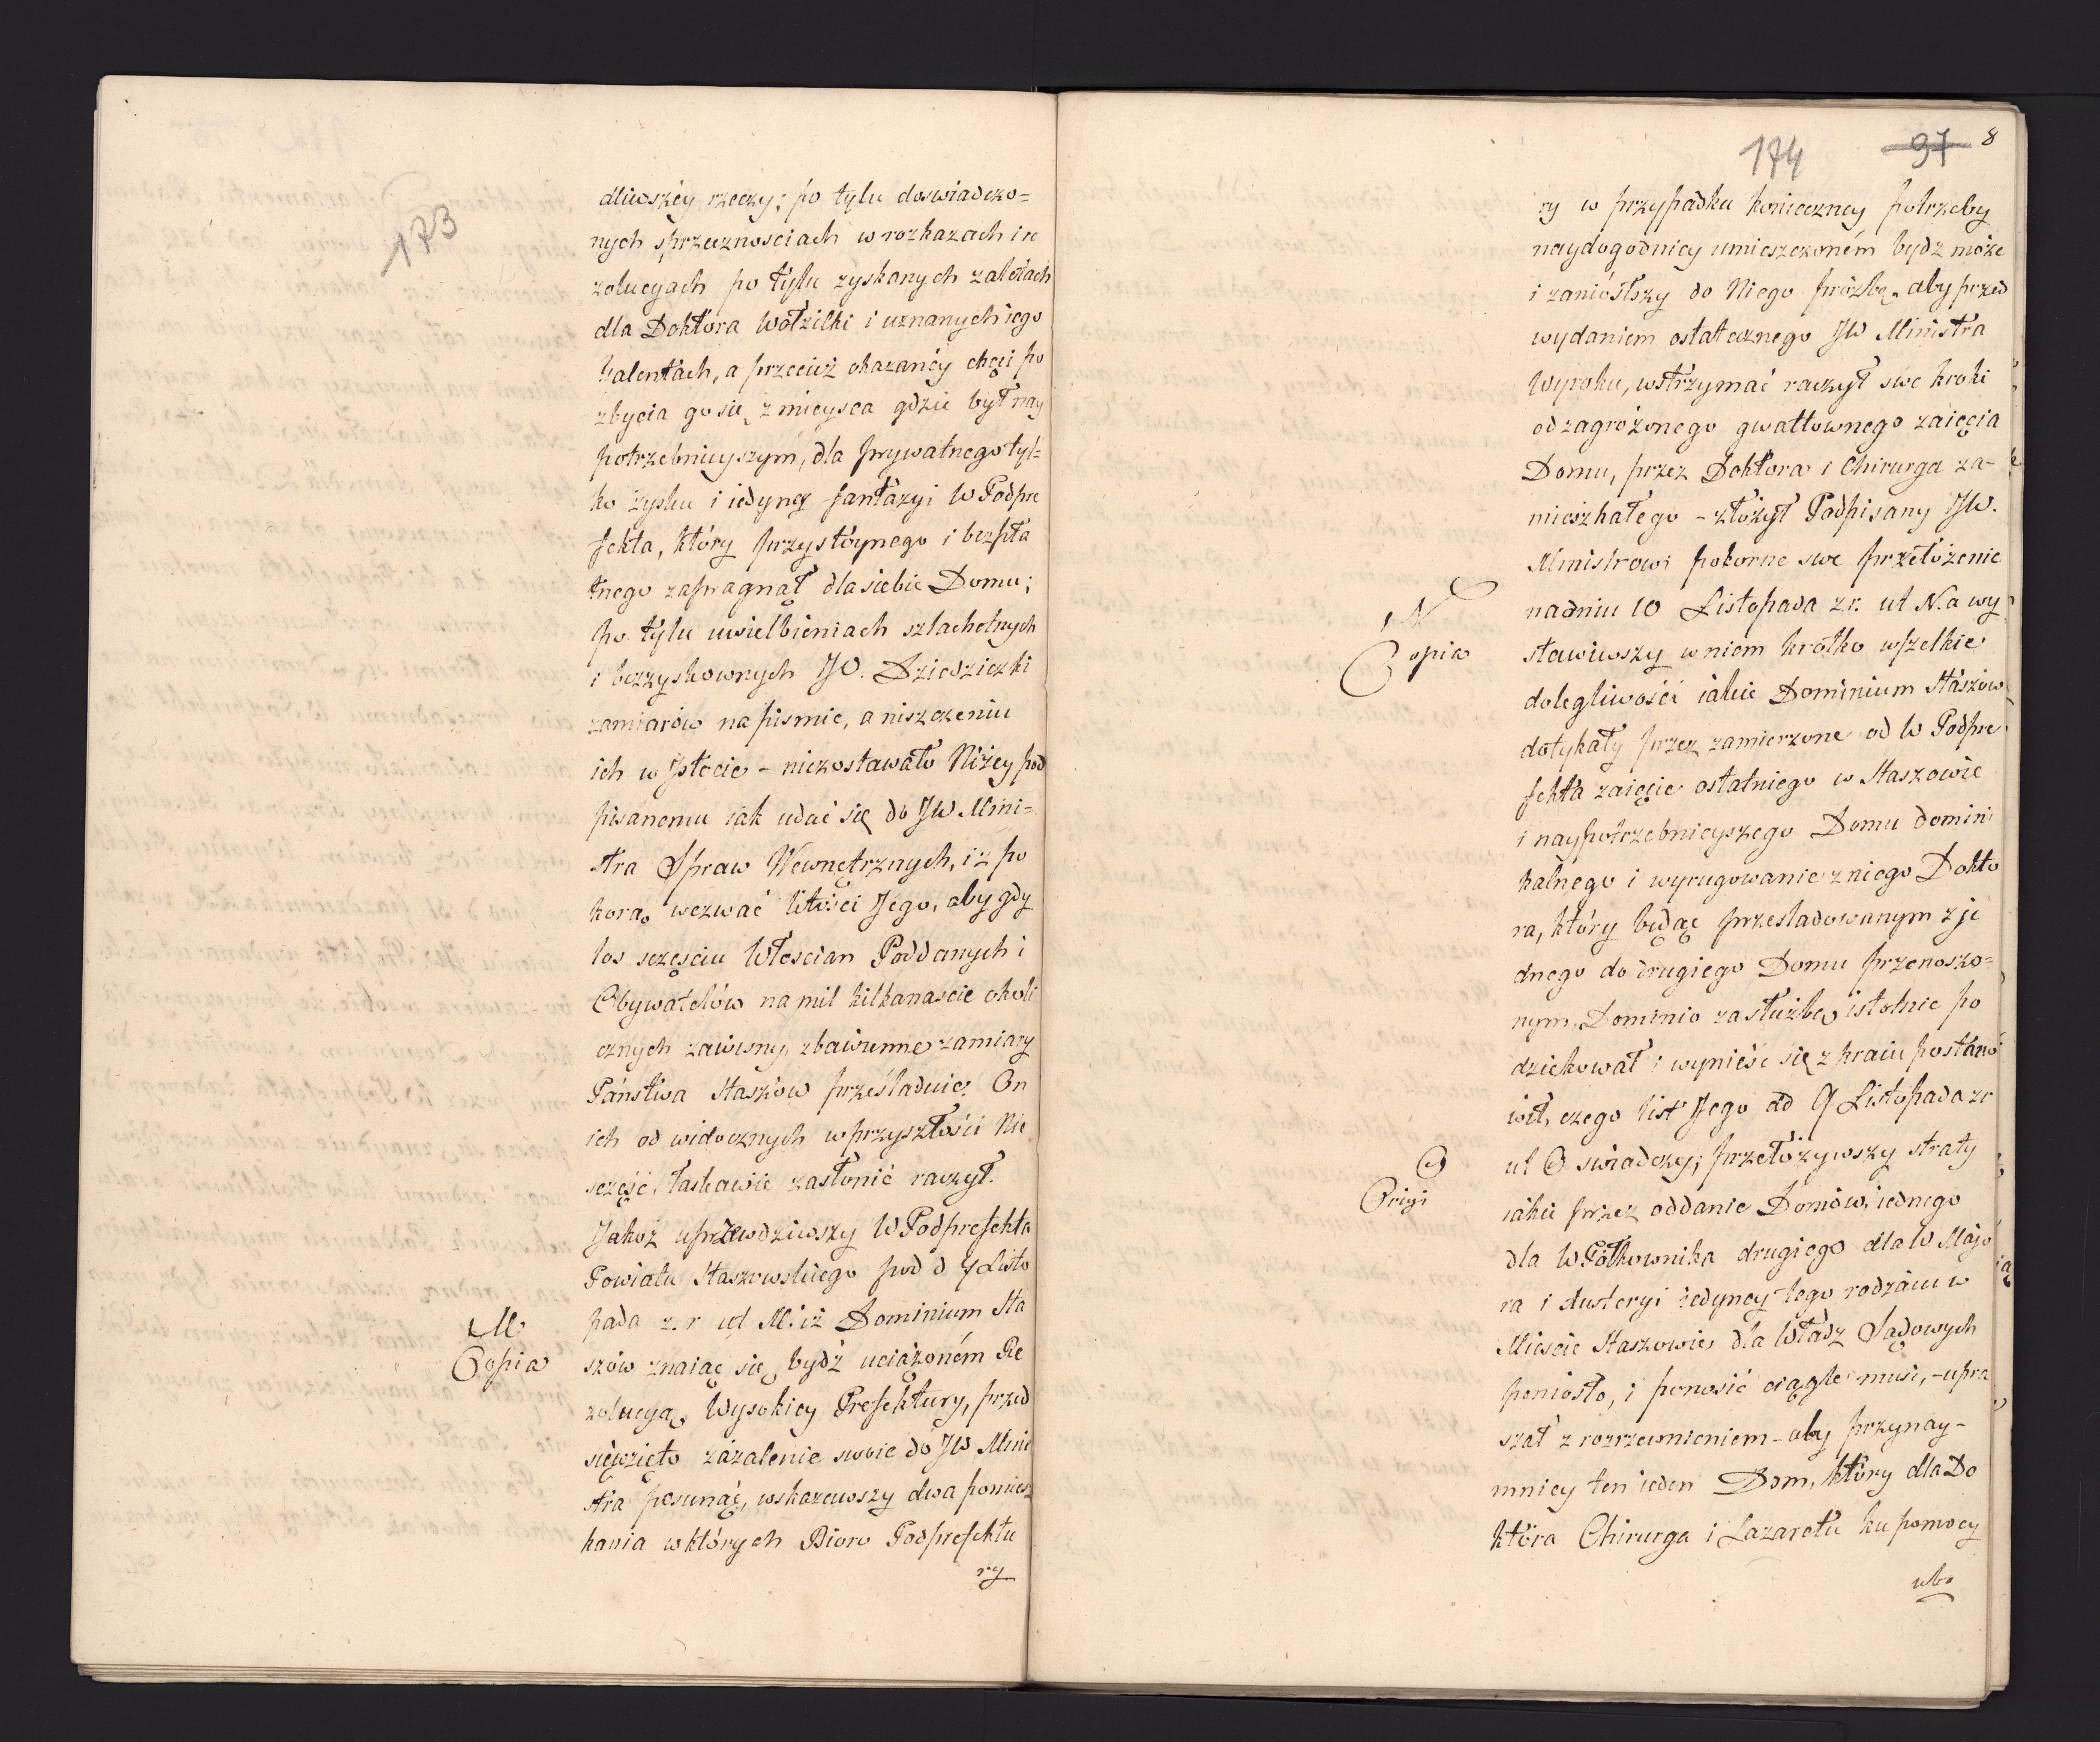 173
dliwszéy rzeczy; po tylu doswiadczo=
nych sprzecznosciach w rozkazach i re
zolucyach po tylu zyskanych zaletach
dla Doktora Wołzilki i uznanych iego
talentach, a przecież okazanéy chęci po
zbycia go się z mieysca gdzie był nay
potrzebnieyszym, dla prywatnego tyl=
ko zysku i iedyney fantazyi W Podpre
fekta, który przystóynego i bezpła
tnego zapragnął dla siebie Domu;
po tylu uwielbieniach szlachetnych
i bezzyskownych JW. Dziedziczki
zamiarów na pismie, a niszczeniu
ich w Jstocie – niezostawało Niżey pod
pisanemu iak udać się do JW Mini=
stra Spraw Wewnętrznych, i z po
korą wezwać litości Jego, aby gdy
los sczęściu Włoscian Poddanych i
Obywatelów na mil kilkanascie okoli
cznych zawisny, zbawienne zamiary
Państwa Staszów prześladuie, On
ich od widocznych w przyszłości Nie
sczęść, łaskawie zasłonić raczył.
Jakoż uprzewdziwszy W Podprefekta
Powiatu Staszowskiego pod d 7 Listo
M
Copia
pada z. r ut M. iż Dominium Sta
szów znaiąc się bydź uciążoném Re
zolucyą Wysokiey Prefektury, przed
sięwzięło zażalenie swoie do JW Mini
stra posunąć, wskazawszy dwa pomiesz
kania w których Bióro Podprefektu
ry
174
37
8
ry w przypadku konieczney potrzeby
naydogodniey umieszczoném bydz może
i zaniósłszy do Niego próźbę, aby przed
wydaniem ostatecznego JW Ministra
Wyroku, wstrzymać raczył swe kroki
od zagrożonego gwałtownego zaięcia
Domu, przez Doktora i Chirurga za-
mieszkałego – złożył Podpisany JW.
Ministrowi pokorne swe przełożenie
N
Copia
na dniu 10 Listopada z r. ut N. a wy
stawiwszy w niem krótko wszelkie
dolegliwości iakie Dominium Staszów
dotykały przez zamierzone od W Podpre
fekta zaięcie ostatniego w Staszowie
i naypotrzebnieyszego Domu domini
kalnego i wyrugowanie z niego Dokto
ra, który będąc przesladowanym z je
dnego do drugiego Domu przenoszo=
nym, Dominio za służbę istotnie po
dziękował i wynieść się z kraiu postano
wił, czego list Jego dd 9 Listopada zr
O
Origi
ut O swiadczy; przełożywszy straty
iakie przez oddanie Domów, iednego
dla W Półkownika drugiego dla W Majo
ra i Austeryi iedyney tego rodzaiu w
Miescie Staszowie, dla Władz Sądowych
poniosło, i ponosić ciągle musi, – upra
szał z rozrzewnieniem – aby przynay-
mniey ten ieden Dom, który dla Do
która Chirurga i Lazaretu ku pomocy
ubo